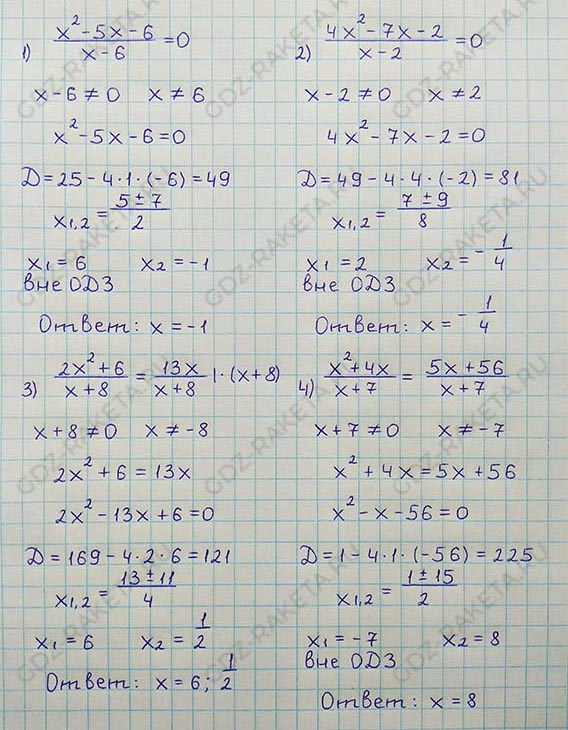 1) (x² - 5x - 6)/(x - 6) = 0
x - 6 ≠ 0   x ≠ 6
x² - 5x - 6 = 0
D = 25 - 4·1·(-6) = 49
x₁,₂ = (5 ± 7)/2
x₁ = 6   x₂ = -1
вне ОДЗ
Ответ: x = -1
2) (4x² - 7x - 2)/(x - 2) = 0
x - 2 ≠ 0   x ≠ 2
4x² - 7x - 2 = 0
D = 49 - 4·4·(-2) = 81
x₁,₂ = (7 ± 9)/8
x₁ = 2   x₂ = -1/4
вне ОДЗ
Ответ: x = -1/4
3) (2x² + 6)/(x + 8) = 13x/(x + 8) |·(x + 8)
x + 8 ≠ 0   x ≠ -8
2x² + 6 = 13x
2x² - 13x + 6 = 0
D = 169 - 4·2·6 = 121
x₁,₂ = (13 ± 11)/4
x₁ = 6   x₂ = 1/2
Ответ: x = 6; 1/2
4) (x² + 4x)/(x + 7) = (5x + 56)/(x + 7)
x + 7 ≠ 0   x ≠ -7
x² + 4x = 5x + 56
x² - x - 56 = 0
D = 1 - 4·1·(-56) = 225
x₁,₂ = (1 ± 15)/2
x₁ = -7   x₂ = 8
вне ОДЗ
Ответ: x = 8
GDZ-RAKETA.RU